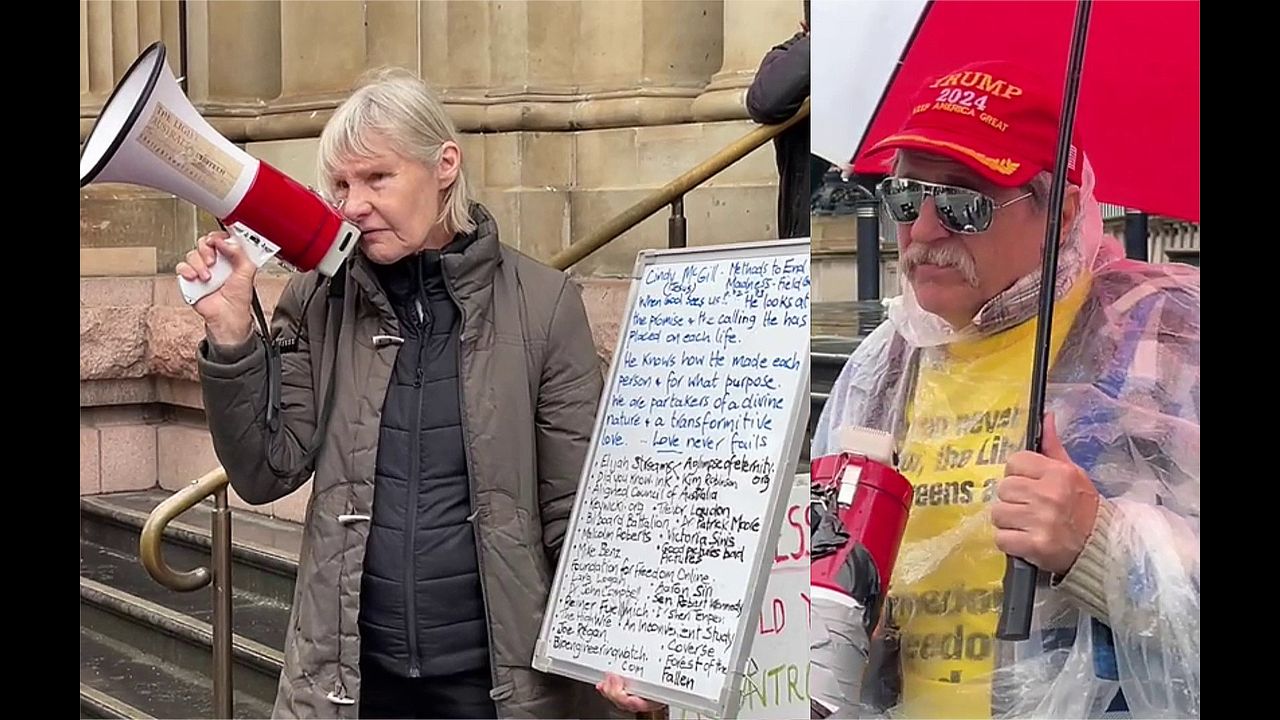 Cindy McGill - Methods to End
(Jesus) Madness - Field
When God sees us! He looks at
the promise & the calling He has
placed on each life.
He knows how He made each
person & for what purpose.
We are partakers of a divine
nature & a transformitive
love. - Love never fails
• Elijah Streams • A glimpse of eternity.
org
• Did you know.ink • Kim Robinson
• Aligned Council of Australia
• Keywicki.org • Trevor Loudon
• Billboard Battalion • Dr Patrick Moore
• Malcolm Roberts • Victoria Sinis
• Good pictures bad
pictures
• Mike Benz
Foundation for Freedom Online.
• Lara Logan • Aaron Siri
• Dr. John Campbell • Sen Robert Kennedy
• Reiner Fuellmich • Sheri Tenpen
• The Highwire • An Inconvenient Study
• Joe Rogan • Coverse
• Bioengineeringwatch.
com
• Forest of the
Fallen
ESS
LD Y
NTRO
TRUMP
2024
KEEP AMERICA GREAT
never
or, the Lib
eens a
merica
eedo